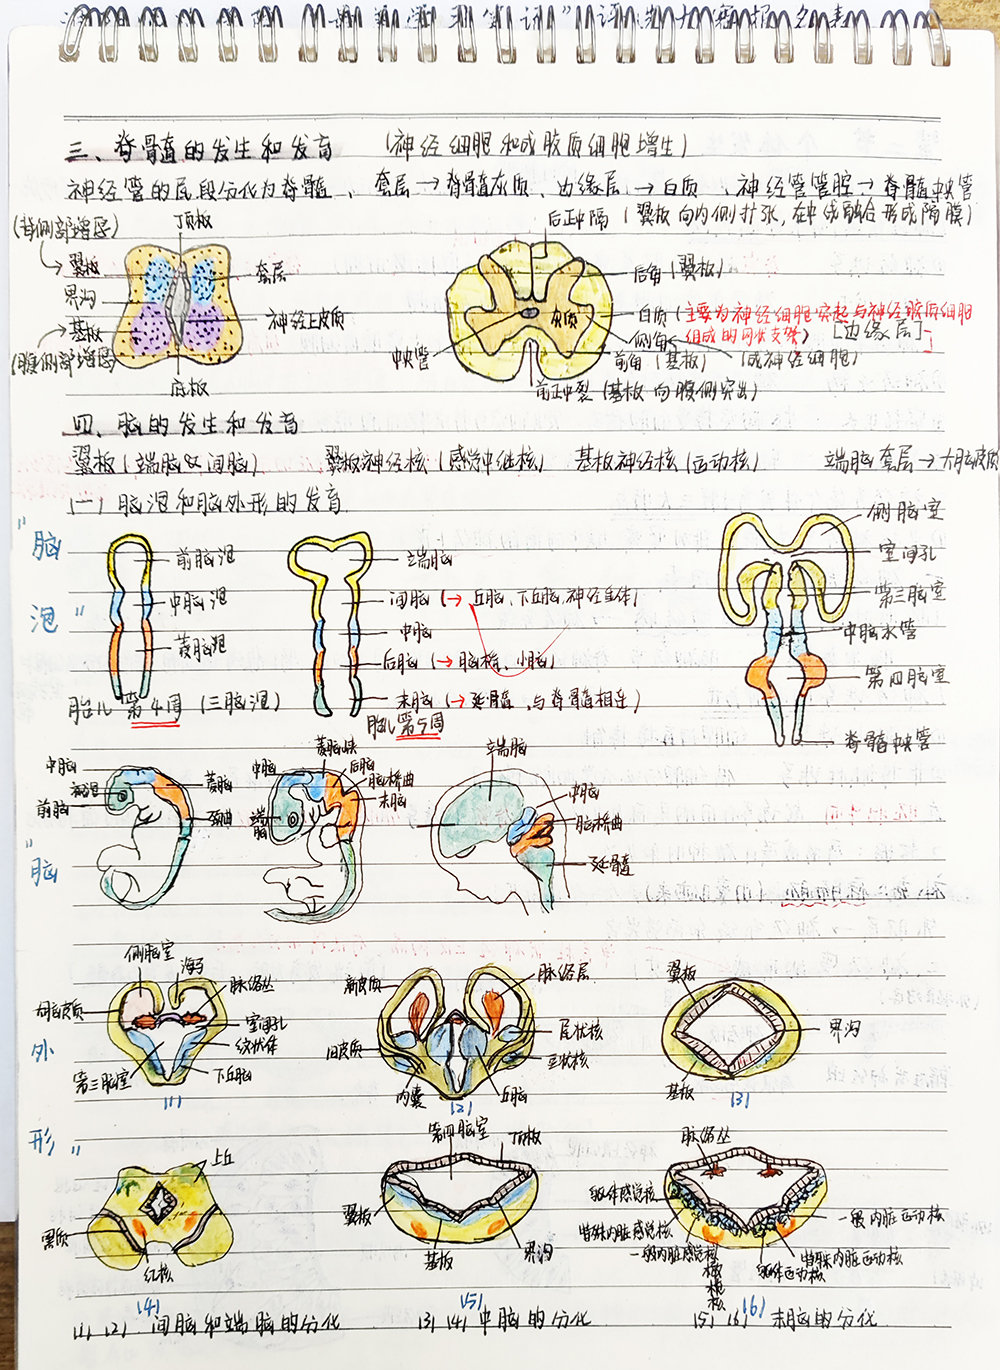 三、脊髓的发生和发育 (神经细胞和成胶质细胞增生)
神经管的尾段分化为脊髓、套层→脊髓灰质、边缘层→白质、神经管管腔→脊髓中央管
后正中隔 (翼板向内侧扩张,在中线融合形成隔膜)
(背侧部增厚)
顶板
翼板
界沟
基板
(腹侧部增厚)
套层
神经上皮质
底板
后角(翼板)
灰质
白质(主要为神经细胞突起与神经胶质细胞
组成的网状支架) [边缘层]
侧角
中央管
前角(基板) (成神经细胞)
前正中裂(基板向腹侧突出)
四、脑的发生和发育
翼板(端脑&间脑) 翼板神经核(感觉中继核) 基板神经核(运动核) 端脑套层→大脑皮质
(一)脑泡和脑外形的发育
"脑泡"
前脑泡
中脑泡
菱脑泡
胎儿第4周 (三脑泡)
端脑
间脑(→丘脑、下丘脑、神经垂体)
中脑
后脑(→脑桥、小脑)
末脑(→延骨髓、与脊骨髓相连)
胎儿第5周
侧脑室
室间孔
第三脑室
中脑水管
第四脑室
脊骨髓中央管
"脑外形"
中脑
视泡
前脑
菱脑
颈曲
菱脑峡
中脑
后脑
脑桥曲
末脑
端脑
端脑
中脑
脑桥曲
延骨髓
侧脑室
海马
大脑皮质
脉络丛
室间孔
纹状体
第三脑室
下丘脑
(1)
新皮质
脉络层
尾状核
旧皮质
豆状核
内囊
丘脑
(2)
翼板
界沟
基板
(3)
上丘
黑质
红核
(4)
第四脑室
顶板
翼板
基板
界沟
(5)
脉络丛
躯体感觉核
特殊内脏感觉核
一般内脏感觉核
一般内脏运动核
特殊内脏运动核
躯体运动核
(6)
(1) (2) 间脑和端脑的分化 (3) (4) 中脑的分化 (5) (6) 末脑的分化